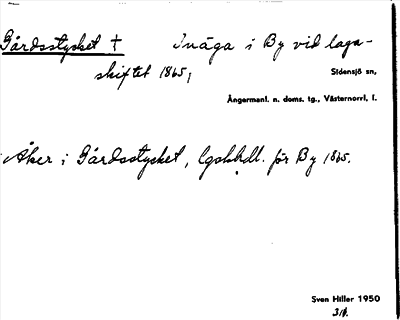 Gårdsstycket † Inäga i By vid laga-
skiftet 1865,
Sidensjö sn,
Ångermanl. n. doms. tg., Västernorrl, l.
Åker i Gårdsstycket, lgskhdl. för By 1865.
Sven Hiller 1950